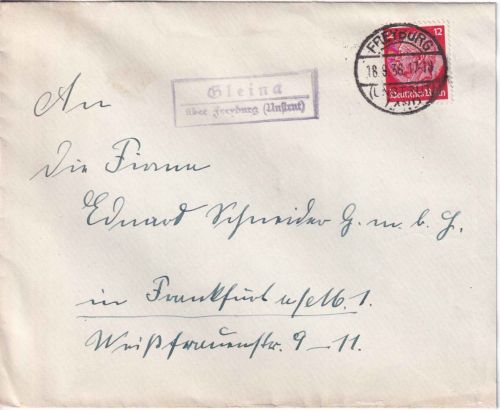 12
Deutsches Reich
FREYBURG
18.9.36.17-18
Gleina
über Freyburg (Unstrut)
An
die Firma
Eduard Schneider G.m.b.H.
in Frankfurt a/M. 1.
Weißfrauenstr. 9-11.